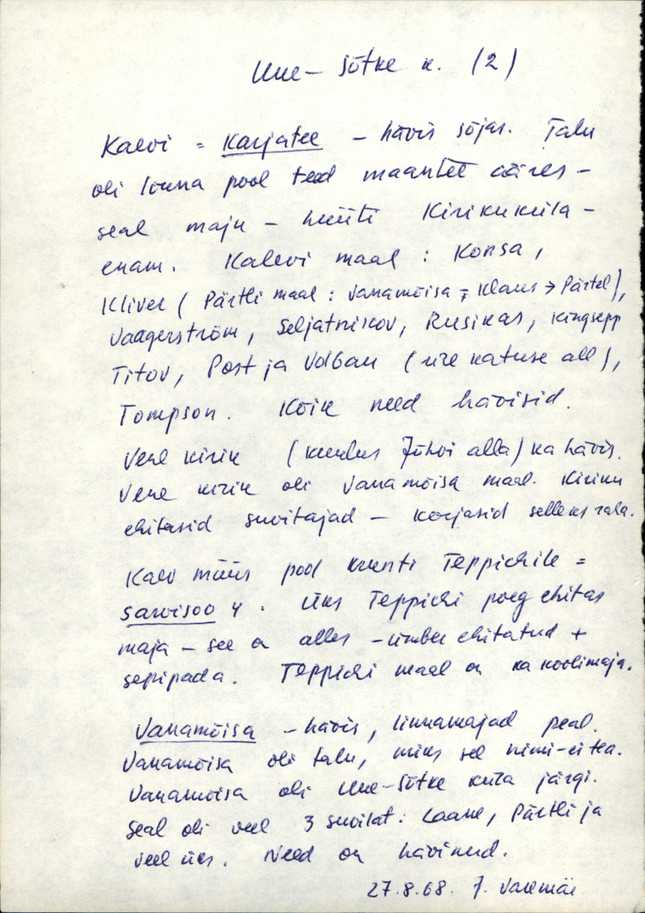 Uue-Sõtke k. (2)
Kalvi = Karjatee - hävis sõjas. Talu
oli lõuna pool teed maantee ääres -
seal maju - hüüti Kirikuküla -
enam. Kalevi maal : Konsa,
Kliver ( Pärtli maal : Vanamõisa = Klaus → Pärtel),
Vaagerström, Seljatnikov, Rusikas, Kingsepp
Titov, Post ja Volban (ühe katuse all),
Tompson. Kõik need hävisid.
Vene kirik (kuulus Jõhvi alla) ka hävis.
Vene kirik oli Vanamõisa maal. Kiriku
ehitasid suvitajad - korjasid selleks raha.
Kalv müüs pool krunti Teppichile =
Sarvisoo 4. Üks Teppichi poeg ehitas
maja - see on alles - ümber ehitatud +
sepipada. Teppichi maal on ka koolimaja.
Vanamõisa - hävis, linnamajad peal.
Vanamõisa oli talu, miks sel nimi - ei tea.
Vanamõisa oli Uue-Sõtke küla järgi.
Seal oli veel 3 suvilat : Laane, Pärtli ja
veel üks. Need on hävinud.
27.8.68. J. Varemäe